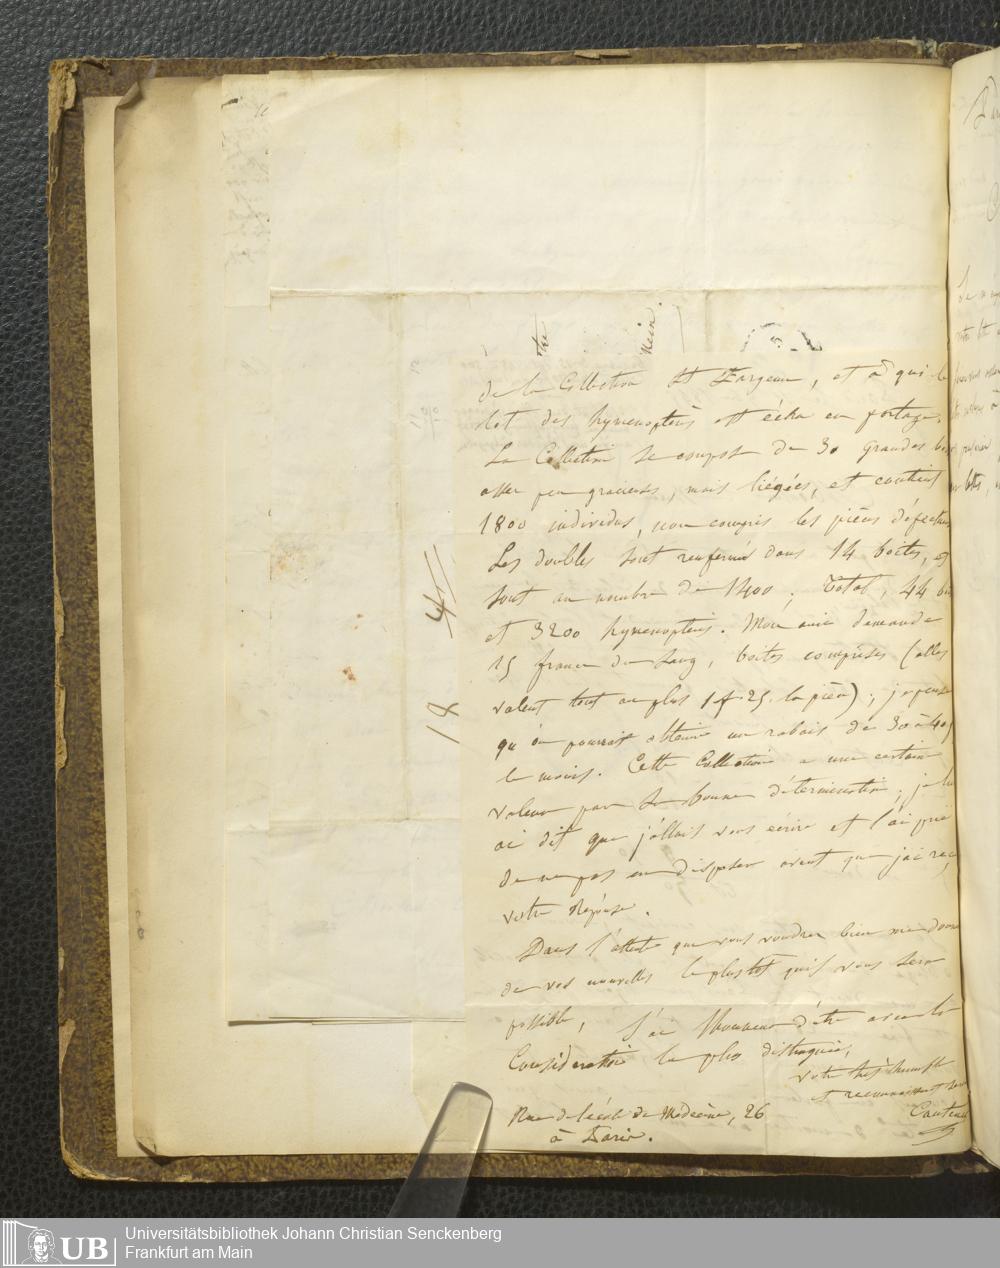 de la Collection St Fargeau, et à qui le
lot des hymenoptères est échu en partage.
La Collection se compose de 30 grandes
assez peu gracieuses, mais liégées, et contient
1800 individus, non compris les pièces défectueu
Les doubles sont renfermés dans 14 boites, et
sont au nombre de 1400; Total, 44 bo
et 3200 hymenoptères. Mon ami demande
15 francs du sang, boites comprises (elles
valent tout au plus 1 f. 25. la pièce); je pense
qu'on pourrait obtenir un rabais de 30 à 40 f
le moins. Cette Collection a une certaine
valeur par sa bonne détermination; je lui
ai dit que j'allais vous écrire et l'ai prié
de ne pas en disposer avant que j'ai reç
votre Réponse.
Dans l'attente que vous voudrez bien me donn
de vos nouvelles le plus tot qu'il vous sera
possible, j'ai l'honneur d'être avec la
Considération la plus distinguée,
votre très humble
et reconnaissant
Rue de l'école de Medecine, 26
à Paris.
18
4
Universitätsbibliothek Johann Christian Senckenberg
Frankfurt am Main
UB